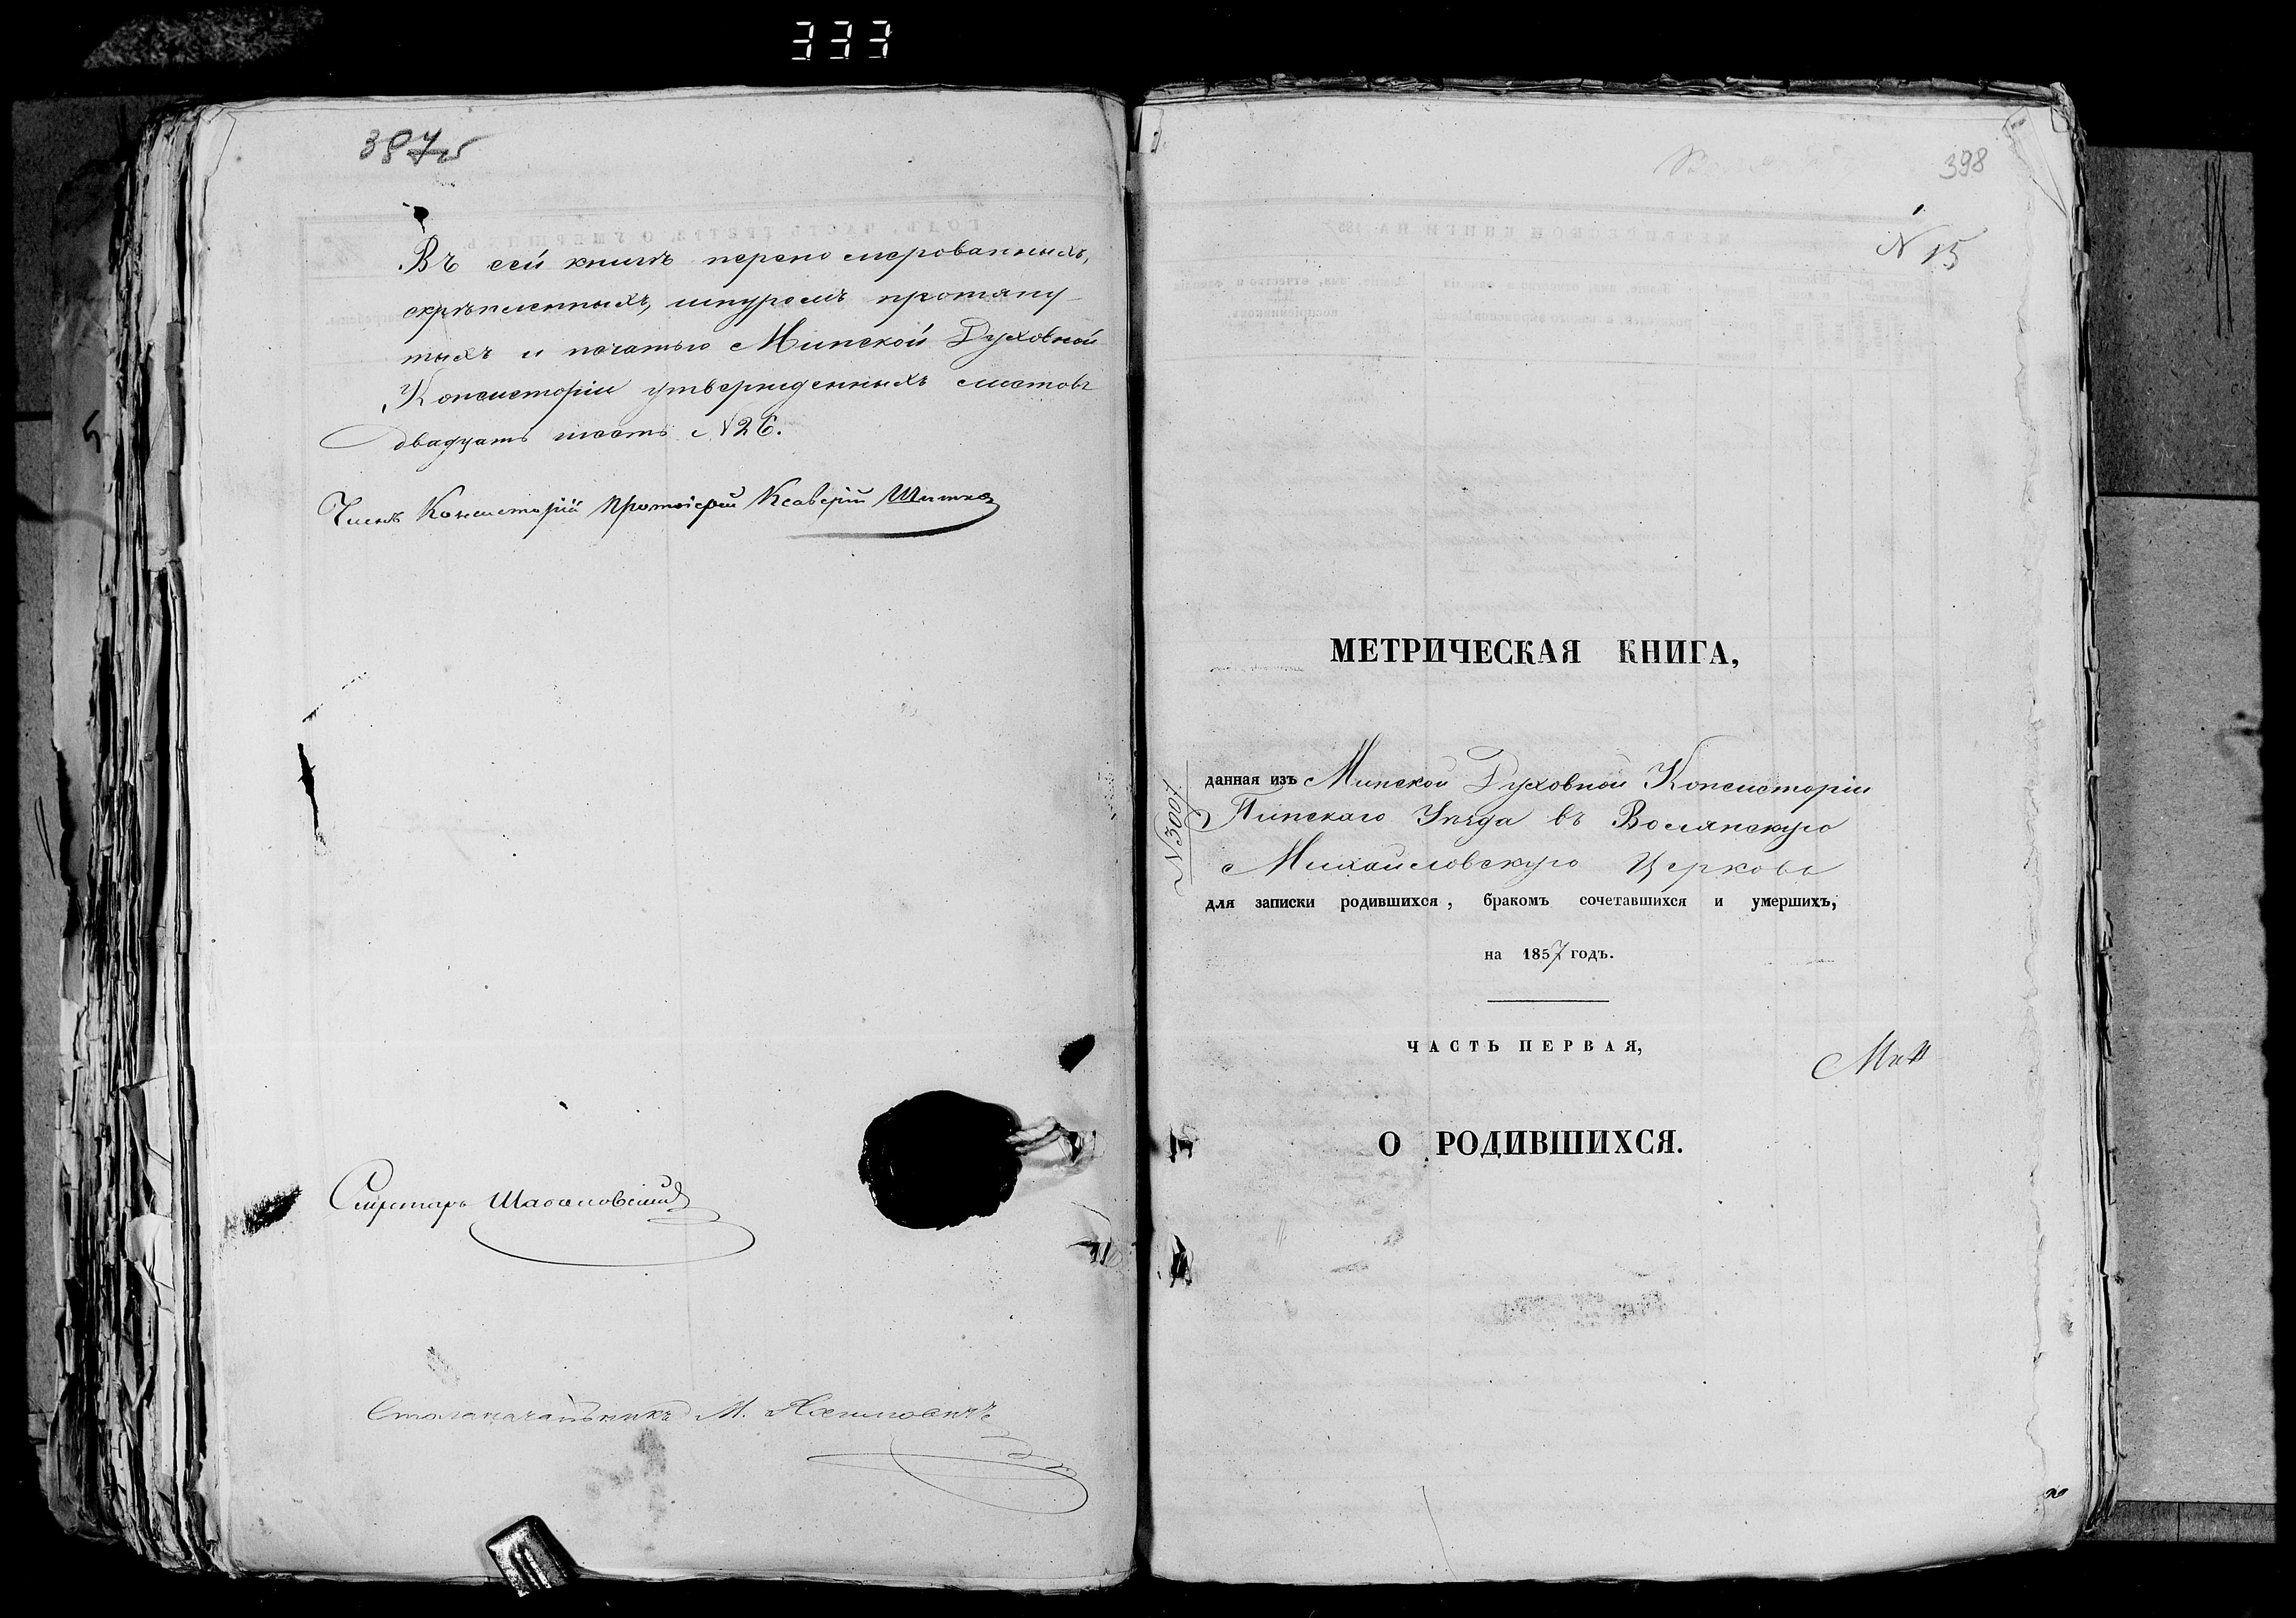 333
397об
Въ сей книгѣ перенумерованныхъ,
скрѣпленныхъ, шнуромъ протяну-
тыхъ и печатью Минской Духовной
Консисторіи утвержденныхъ листовъ
двадцать шесть № 26.
Членъ Консисторіи Протоіерей Ксаверій
Секретарь
Столоначальникъ М.
398
N 15
МЕТРИЧЕСКАЯ КНИГА,
данная изъ Минской Духовной Консисторіи
Пинскаго Уѣзда въ Волянскую
Михайловскую Церковь
для записки родившихся, бракомъ сочетавшихся и умершихъ,
на 1857 годъ.
ЧАСТЬ ПЕРВАЯ,
О РОДИВШИХСЯ.